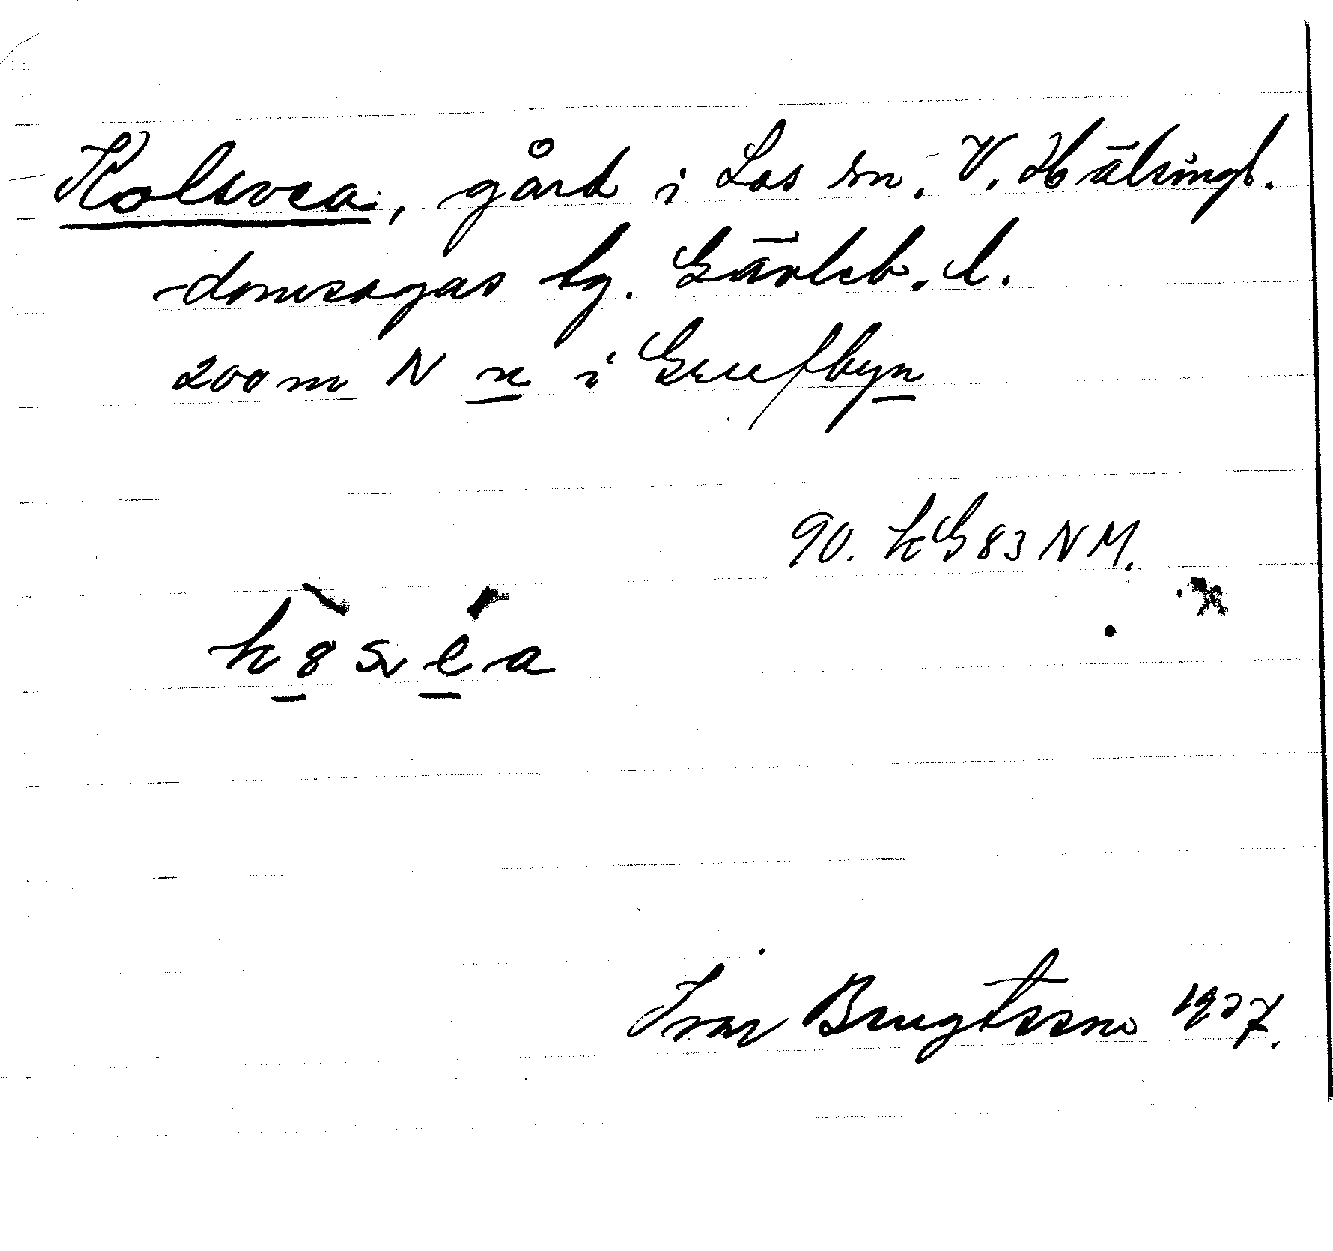 Kolsvea, gård i Los sn. V. Hälsingl.
domsagas tg. Gävleb. l.
200 m N n i Grufbyn
90. kG 83 NM.
k 8 s v e a
Ivar Bengtsson 1927.